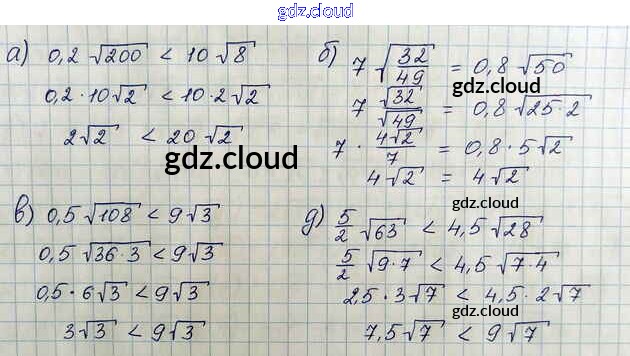 gdz.cloud
а) 0,2 √200 < 10 √8
0,2 · 10√2 < 10 · 2√2
2√2 < 20 √2
gdz.cloud
б) 7 √(32/49) = 0,8 √50
gdz.cloud
7 √32/√49 = 0,8 √(25·2)
7 · 4√2/7 = 0,8 · 5√2
4√2 = 4√2
gdz.cloud
в) 0,5 √108 < 9√3
0,5 √(36·3) < 9√3
0,5 · 6√3 < 9√3
3√3 < 9√3
д) 5/2 √63 < 4,5 √28
5/2 √(9·7) < 4,5 √(7·4)
2,5 · 3√7 < 4,5 · 2√7
gdz.cloud
7,5√7 < 9√7